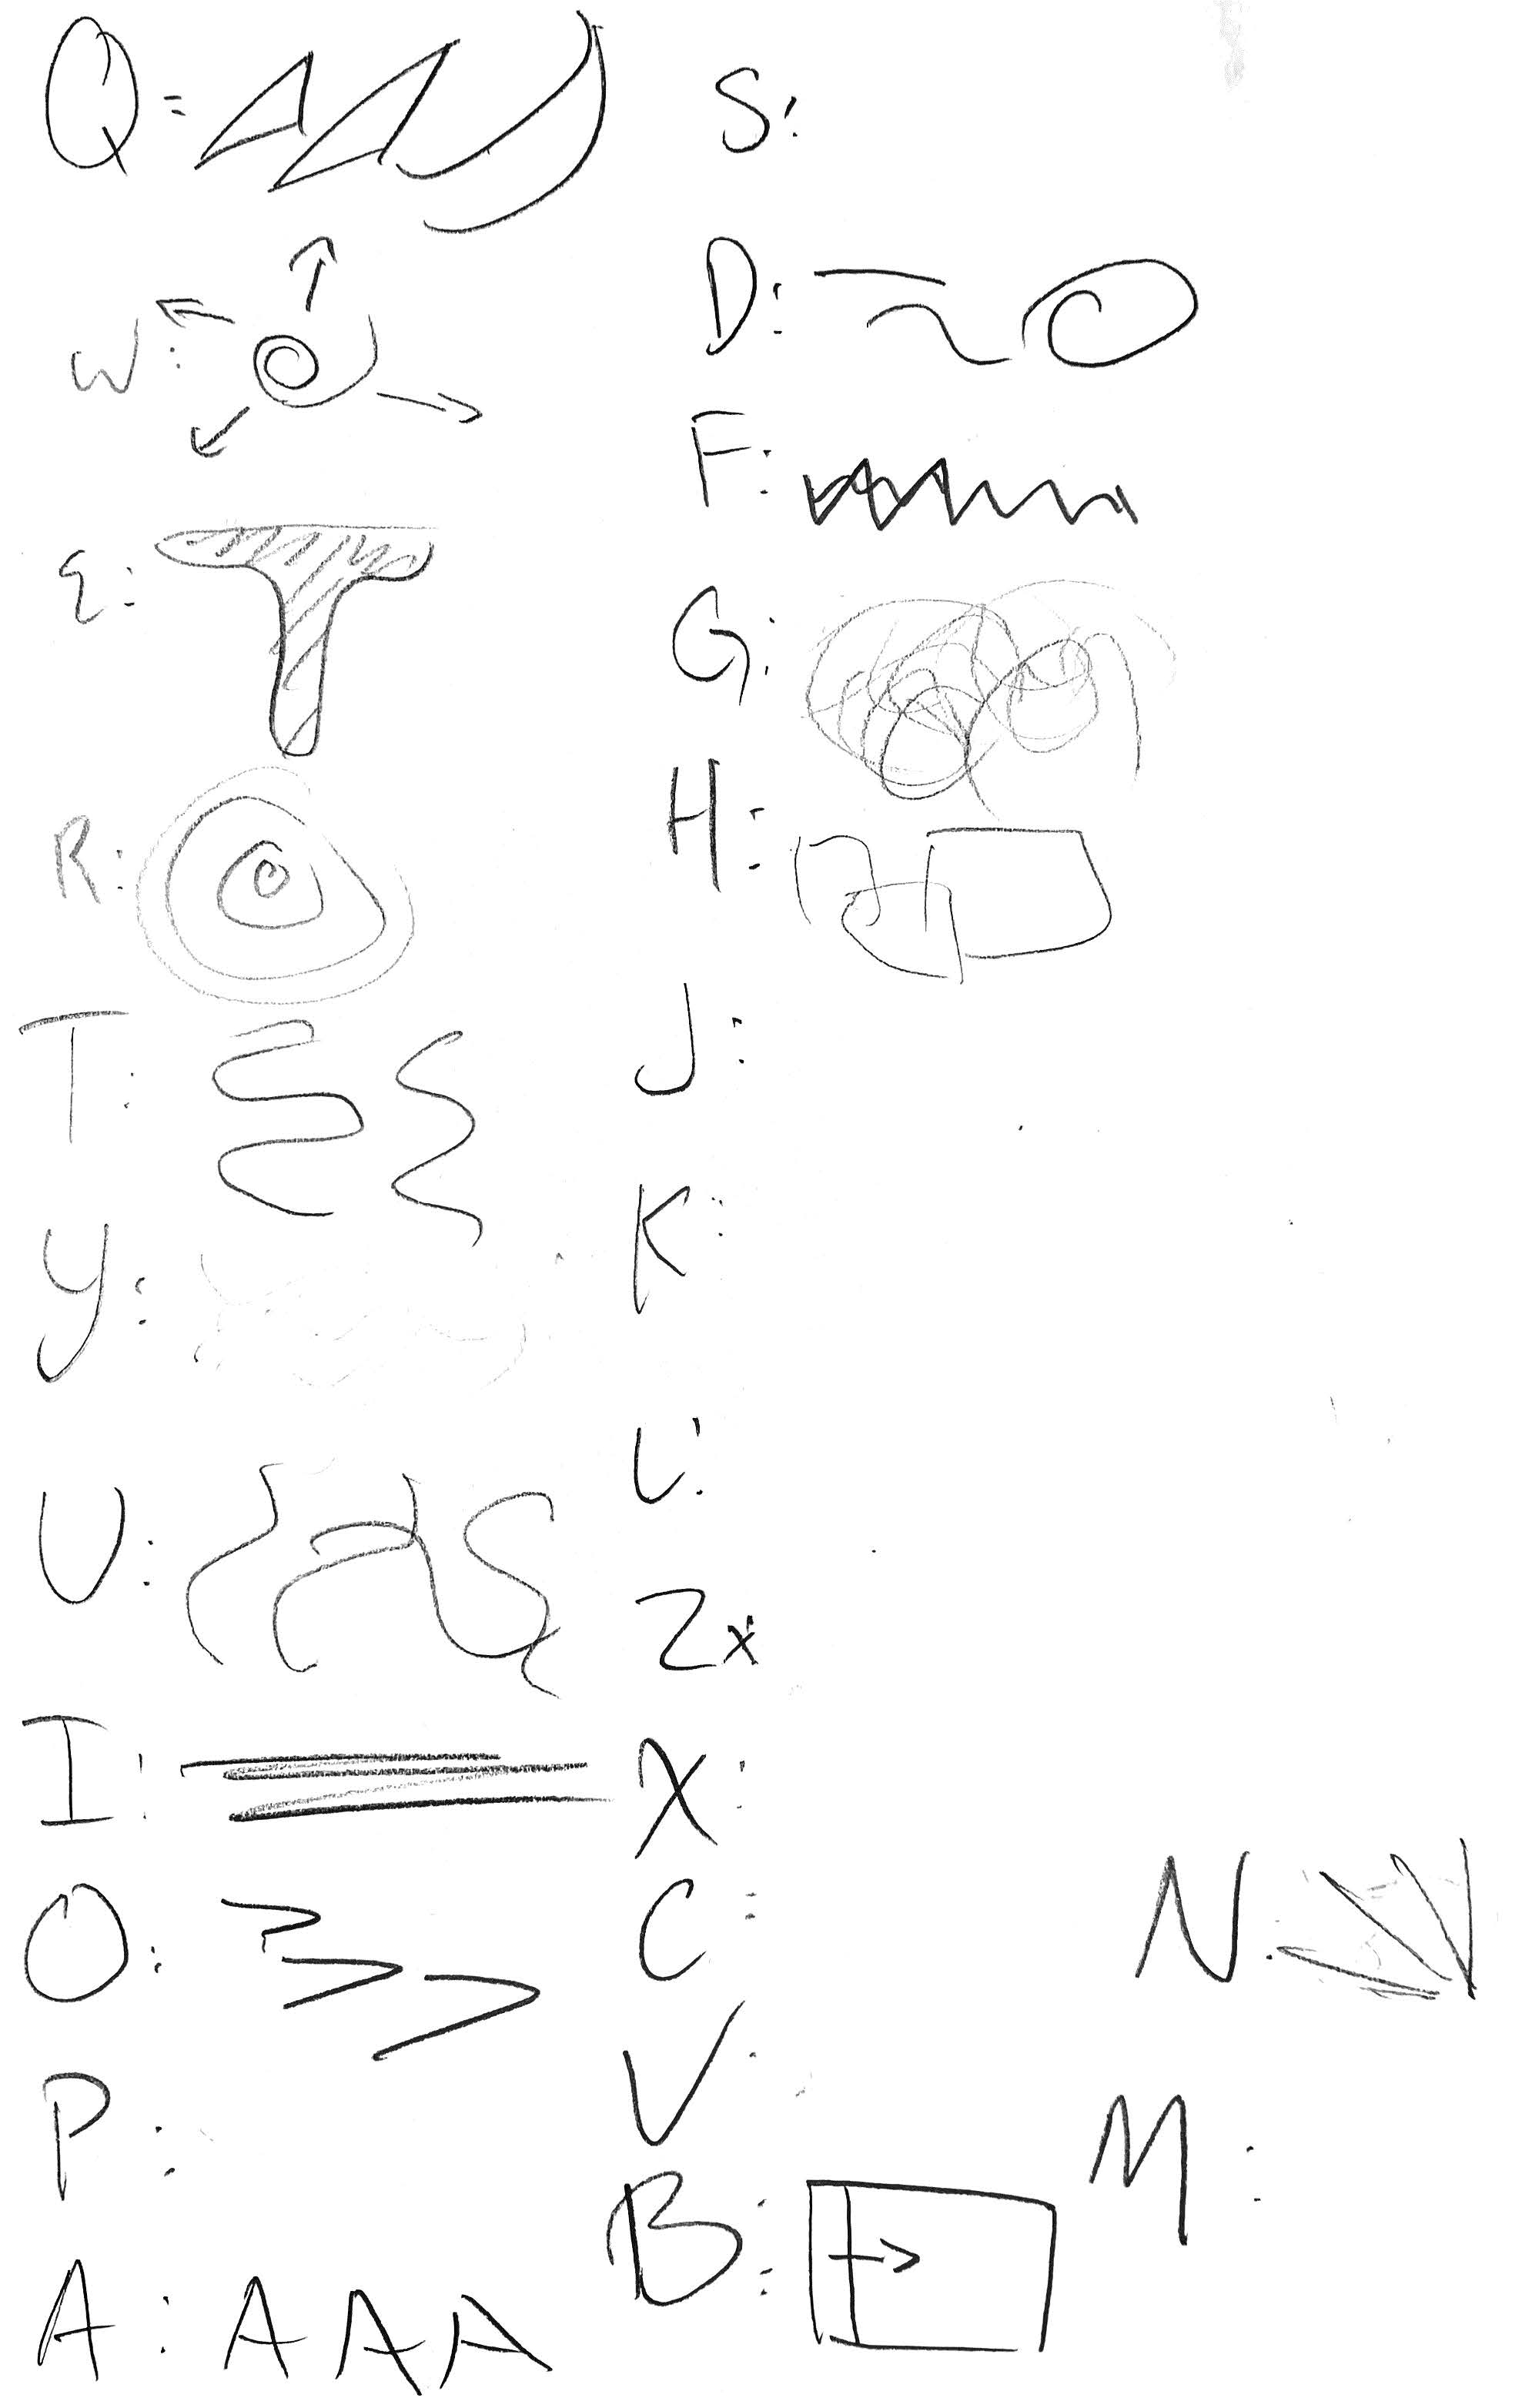 Q =
W:
E:
R:
T:
Y:
U:
I:
O:
P:
A: A A A
S:
D:
F:
G:
H:
J:
K:
L:
Z x
X:
C:
V:
B:
N:
M: